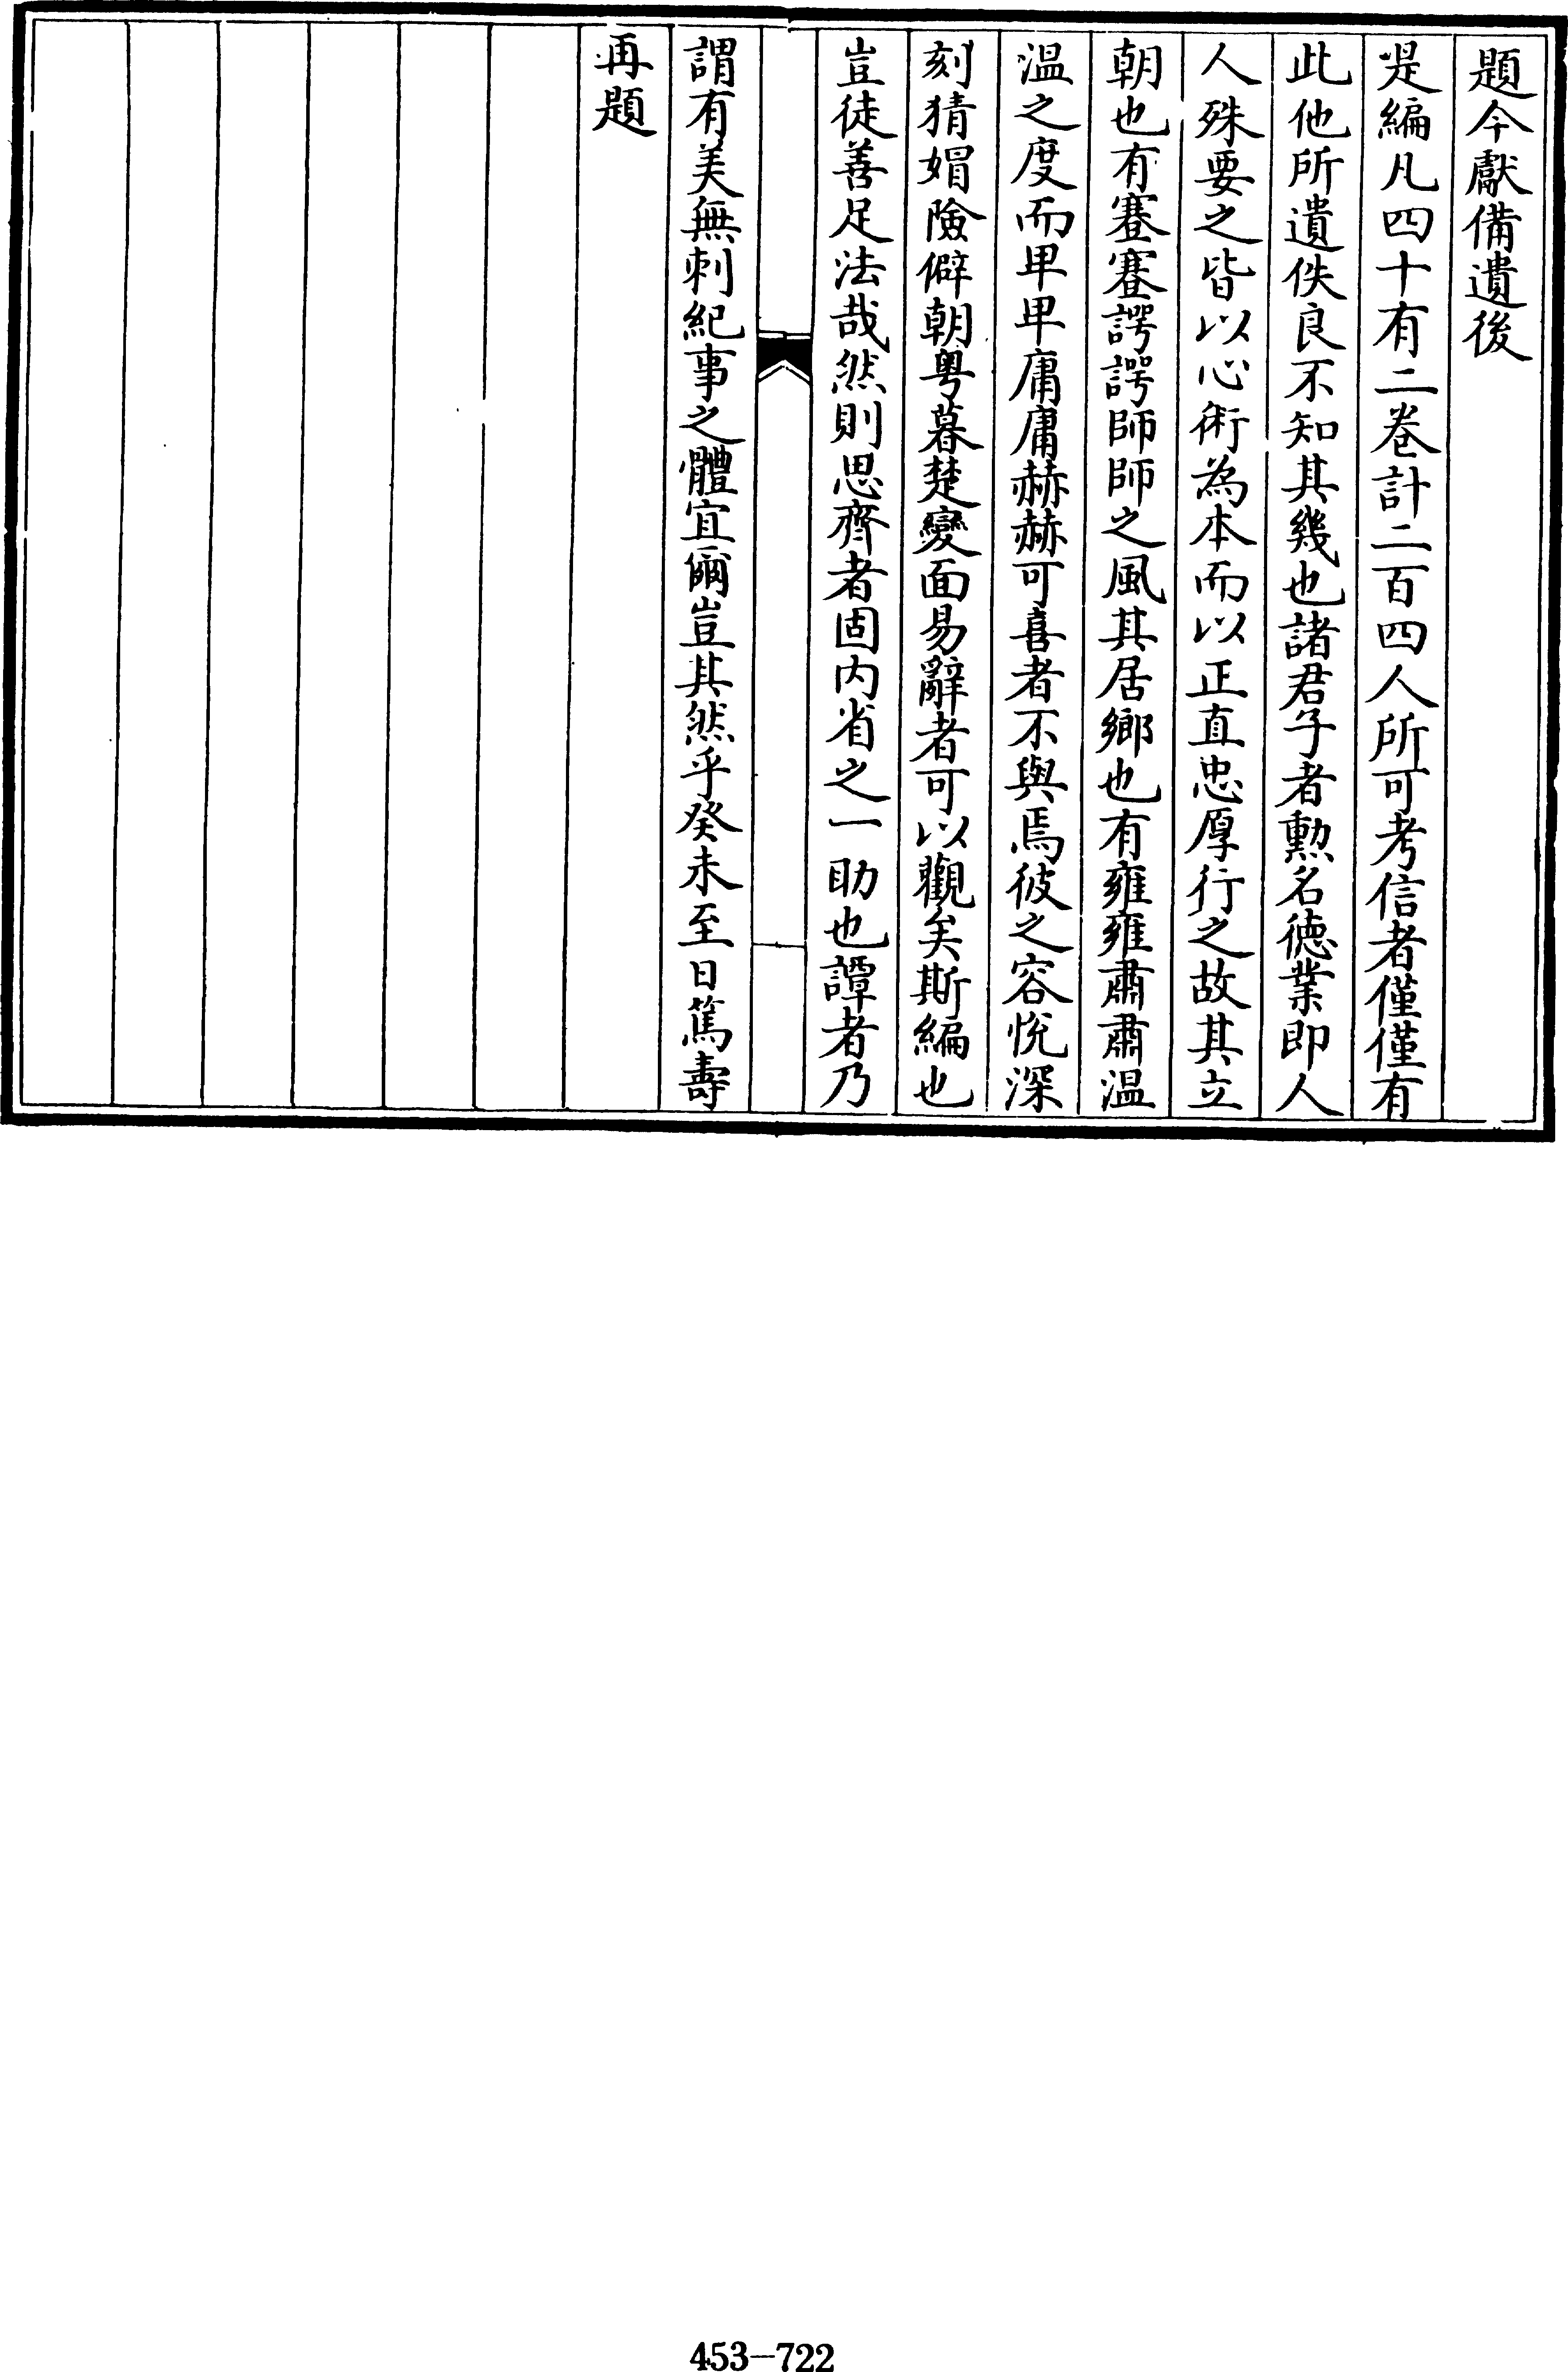 題今獻備遺後
是編凡四十有二卷計二百四人所可考信者僅僅有
此他所遺佚良不知其幾也諸君子者勲名徳業即人
人殊要之皆以心術為本而以正直忠厚行之故其立
朝也有蹇蹇諤諤師師之風其居鄉也有雍雍肅肅温
温之度而卑卑庸庸赫赫可喜者不與焉彼之容悦深
刻猜媢險僻朝粤暮楚變面易辭者可以觀矣斯編也
豈徒善足法哉然則思齊者固内省之一助也譚者乃
謂有美無刺紀事之體宜爾豈其然乎癸未至日篤壽
再題
453-722